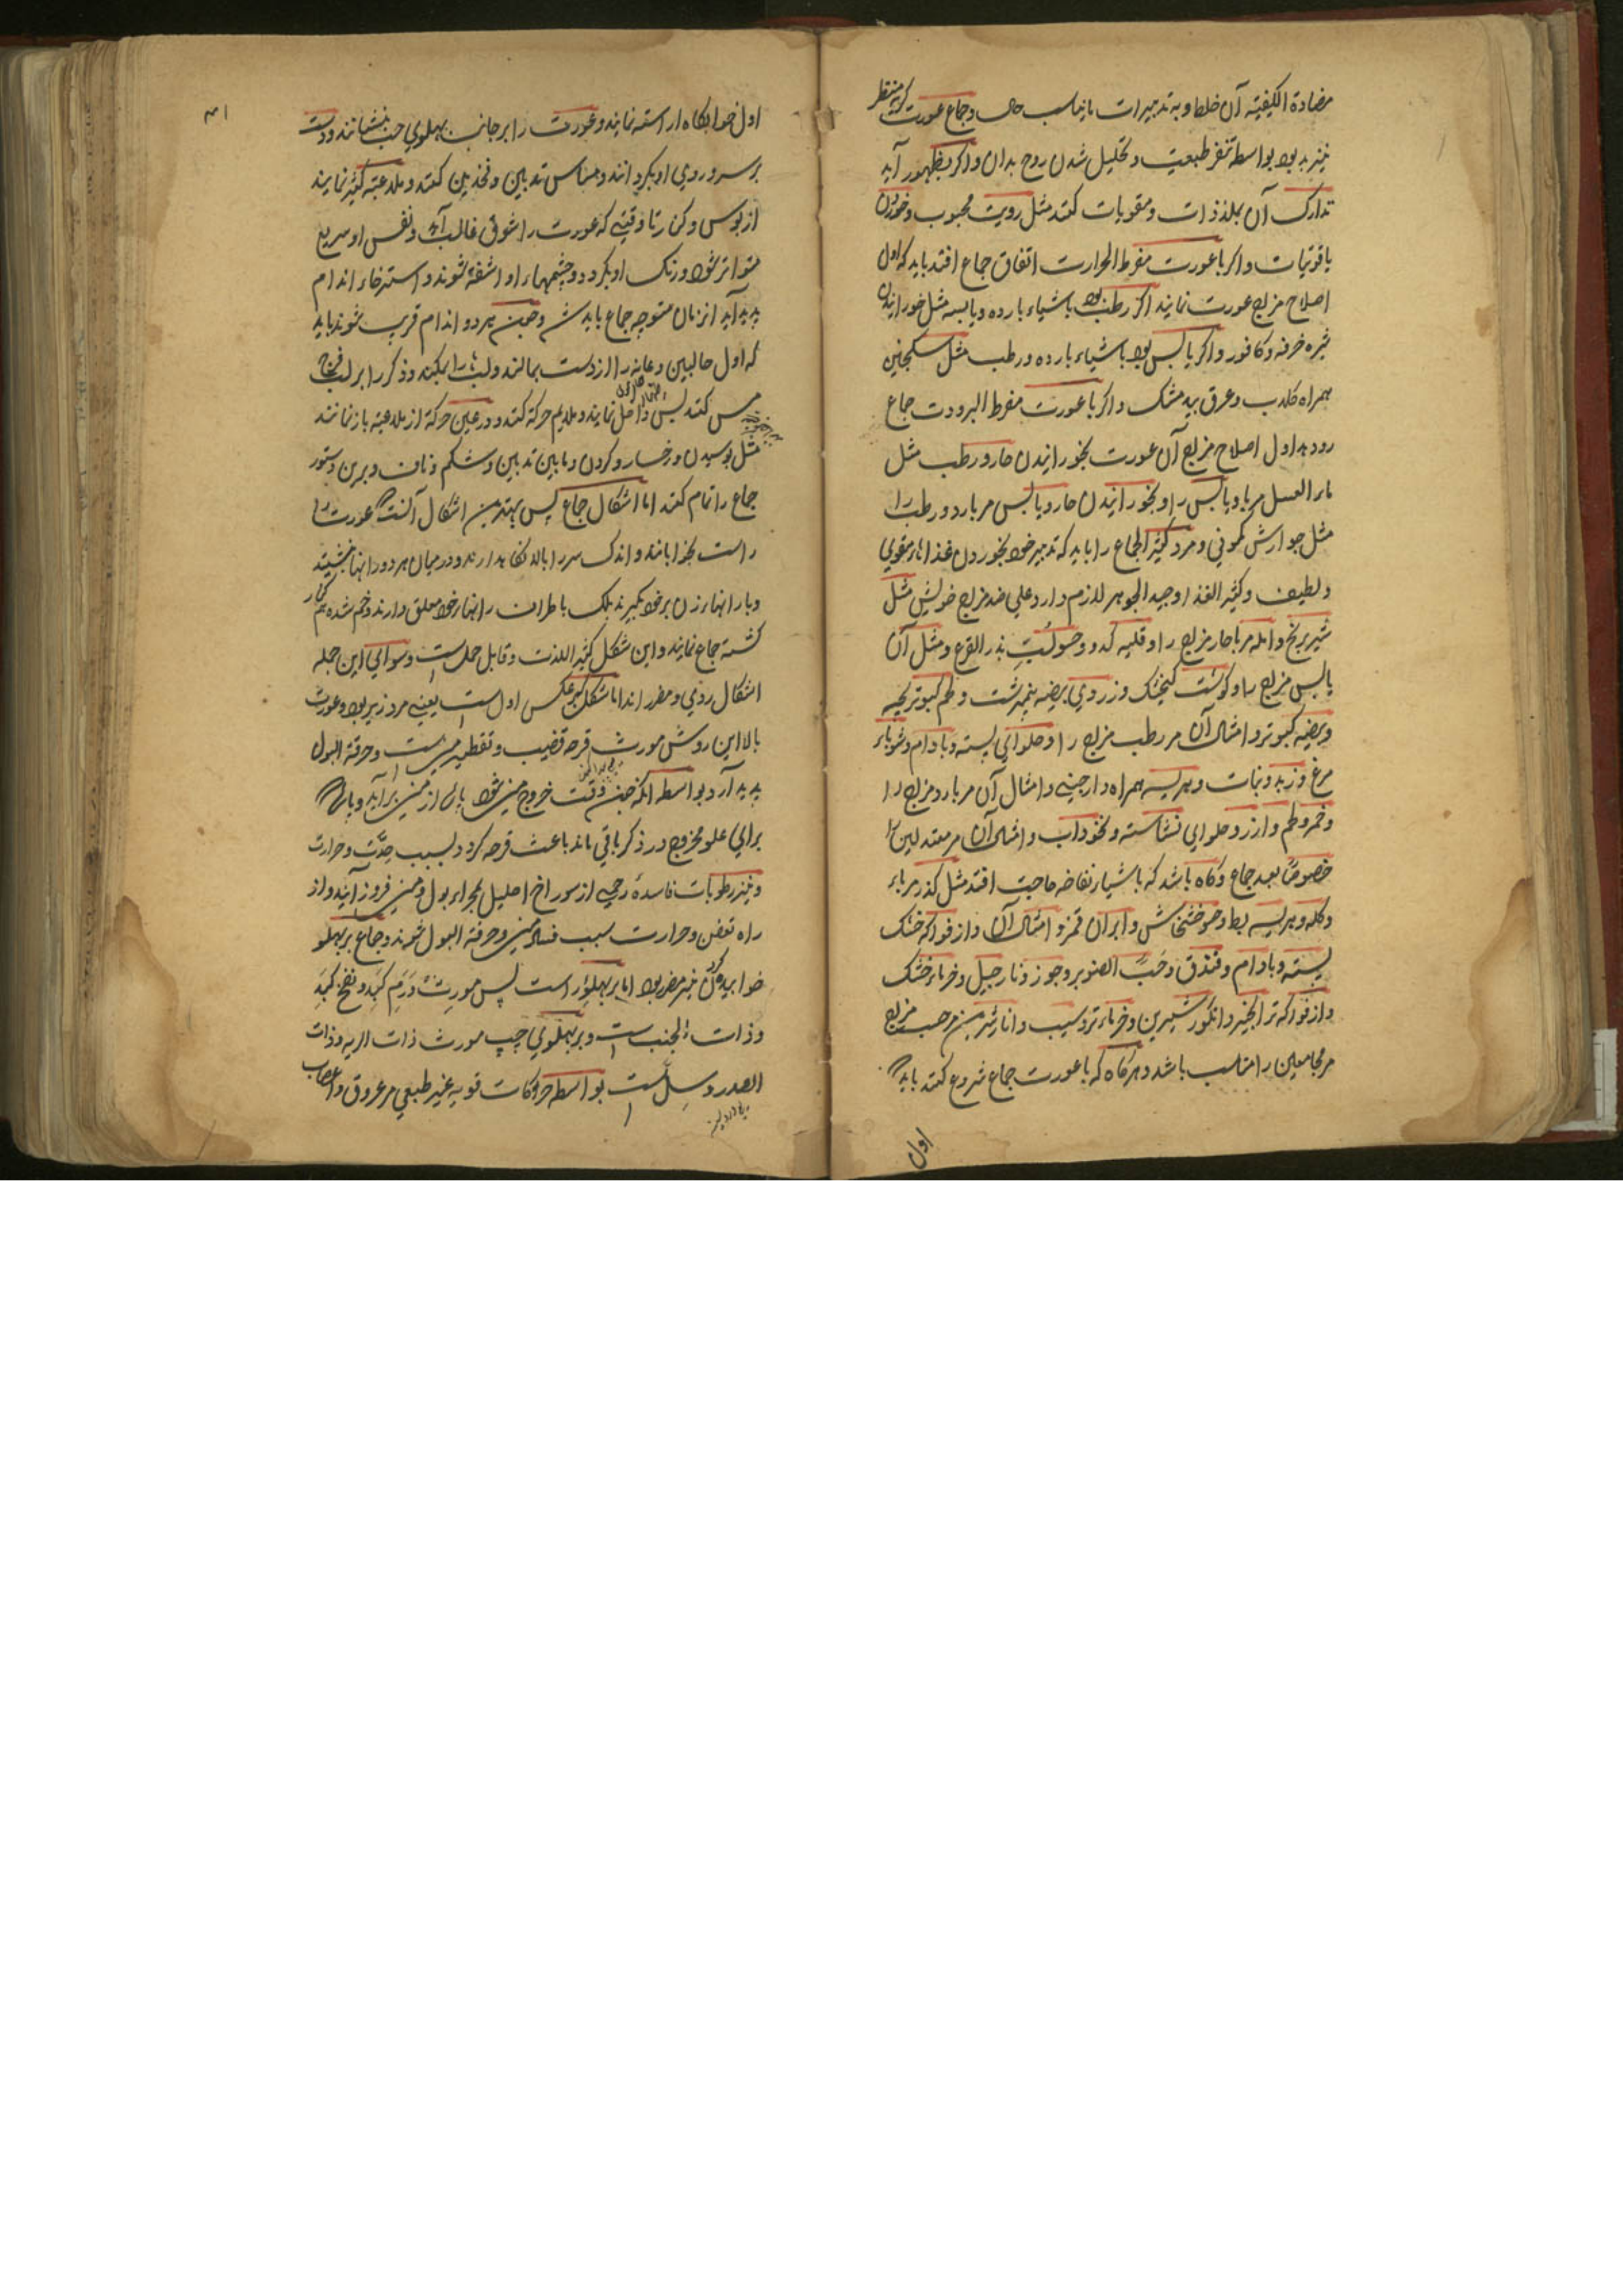 مضادة الکیفیته آن خلط و به تدبیرات مایناسب حال و جماع عورت کریه منظر
نیز بد بود بواسطه تنفر طبیعت و تحلیل شدن روح بدان و اکر بظهور آید
تدارک آن بملذذات و مقویات کنند مثل رویت محبوب و خوردن
یاقوتیات و اکر با عورت مفرط الحرارت اتفاق جماع افتد باید که اول
اصلاح مزاج عورت نمایند اکر رطب بود باشیاء بارده و یابسه مثل خورانیدن
شیره خرفه و کافور و اکر یابس بود باشیاء بارده و رطب مثل سکنجبین
همراه کلاب و عرق بید مشک و اکر با عورت مفرط البرودت جماع
رود بد اول اصلاح مزاج آن عورت بخورانیدن حار و رطب مثل
ماء العسل مر یابس را و بخورانیدن حار و یابس مر بارد و رطب را
مثل جوارش کمونی و مرد کثیر الجماع را باید که تدبیر خود بخوردن غذاهاء مقوی
و لطیف و کثیر الغذا و جید الجوهر لازم دارد علی ضد مزاج خویش مثل
شیر برنج و امله مربا حار مزاج را و قلیه کدو و بذر القرع و مثل آن
یابس مزاج را و کوشت کنجشک و زردی بیضه نیمبرشت و لحم کبوتر بچه
و بیضه کبوتر و امثال آن مر رطب مزاج را و حلوای پسته و بادام و شوباء
مرغ و زبد و نبات و هریسه همراه دارچینی و امثال آن مر بارد مزاج را
و خمر و لحم و ارز و حلوای نشاسته و نخوداب و امثال آن مر معتدلین را
خصوصا بعد جماع و کاه باشد که باشیاء نفاخه حاجت افتد مثل کذر مرباء
و کله و هریسه بط و خشخاش و امثال آن و از فواکه خشک
پسته و بادام و فندق و حب الصنوبر و جوز و نارجیل و خرماء خشک
و از فواکه تر انجیر و انکور شیرین و خرماء تر و سیب و انار شیرین بر حسب مزاج
مر مجامعین را مناسب باشد و هرکاه که با عورت جماع شروع کنند باید که
اول
۳۱
اول خوابکاه اراسته نمایند و عورت را بر جانب پهلوی چپ بنشانند و دست
بر سر و روی او بکردانند و مساس ثدیین و فخذین کنند و ملاعبته کثیر نمایند
از بوس و کنار تا وقتی که عورت را شوق غالب آید و نفس او سریع
متواتر شود و رنک او بکردد و چشمهاء او اشفته شوند و استرخاء اندام
پدید آید انزمان متوجه جماع باید شد و چین هر دو اندام قریب شوند باید
که اول حالبین و عانه را از دست بمالند و لبها را بمکند و ذکر را بر لب فرج
مس کنند پس داخل نمایند و ملایم حرکة کنند و در عین حرکة از ملاعبته باز نمانند
مثل بوسیدن و رخسار و کردن و مابین ثدیین و شکم و ناف و برین دستور
جماع را تمام کنند اما اشکال جماع پس بهترین اشکال آنست که عورت را
راست بخوابانند و اندک سر را بالا نکاه دارند و در میان هر دو رانها بنشینند
و پا رانهاء زن بر خود کیرند بلک باطراف رانهاء خود معلق دارند و خم شده
کشته جماع نمایند و این شکل کثیر اللذت و قابل حمل است و سوای این جمله
اشکال ردی و مضر اند اما شکل بر عکس اول است یعنی مرد زیر بود و عورت
بالا این روش مورث قرحه قضیب و تقطیر منی است و حرقة البول
پدید آرد بواسطه انکه چین وقت خروج منی شود پارۀ از منی برآید و پارۀ
برای علو مخرج در ذکر باقی ماند باعث قرحه کردد بسبب حدّت و حرارت
و نیز رطوبات فاسدۀ رحمی از سوراخ احلیل بمجراء بول و منی فروز آیند و از
راه تعفن و حرارت سبب فساد منی و حرقة البول شوند و جماع بر پهلو
خوابیده کردن نیز مضر بود اما بر پهلوی راست پس مورث ورم کبد و نفخ کبد
و ذات الجنب است و بر پهلوی چپ مورث ذات الریه و ذات
الصدر و سل است بواسطه حرکات قویه غیر طبیعی مر عروق و اعصاب